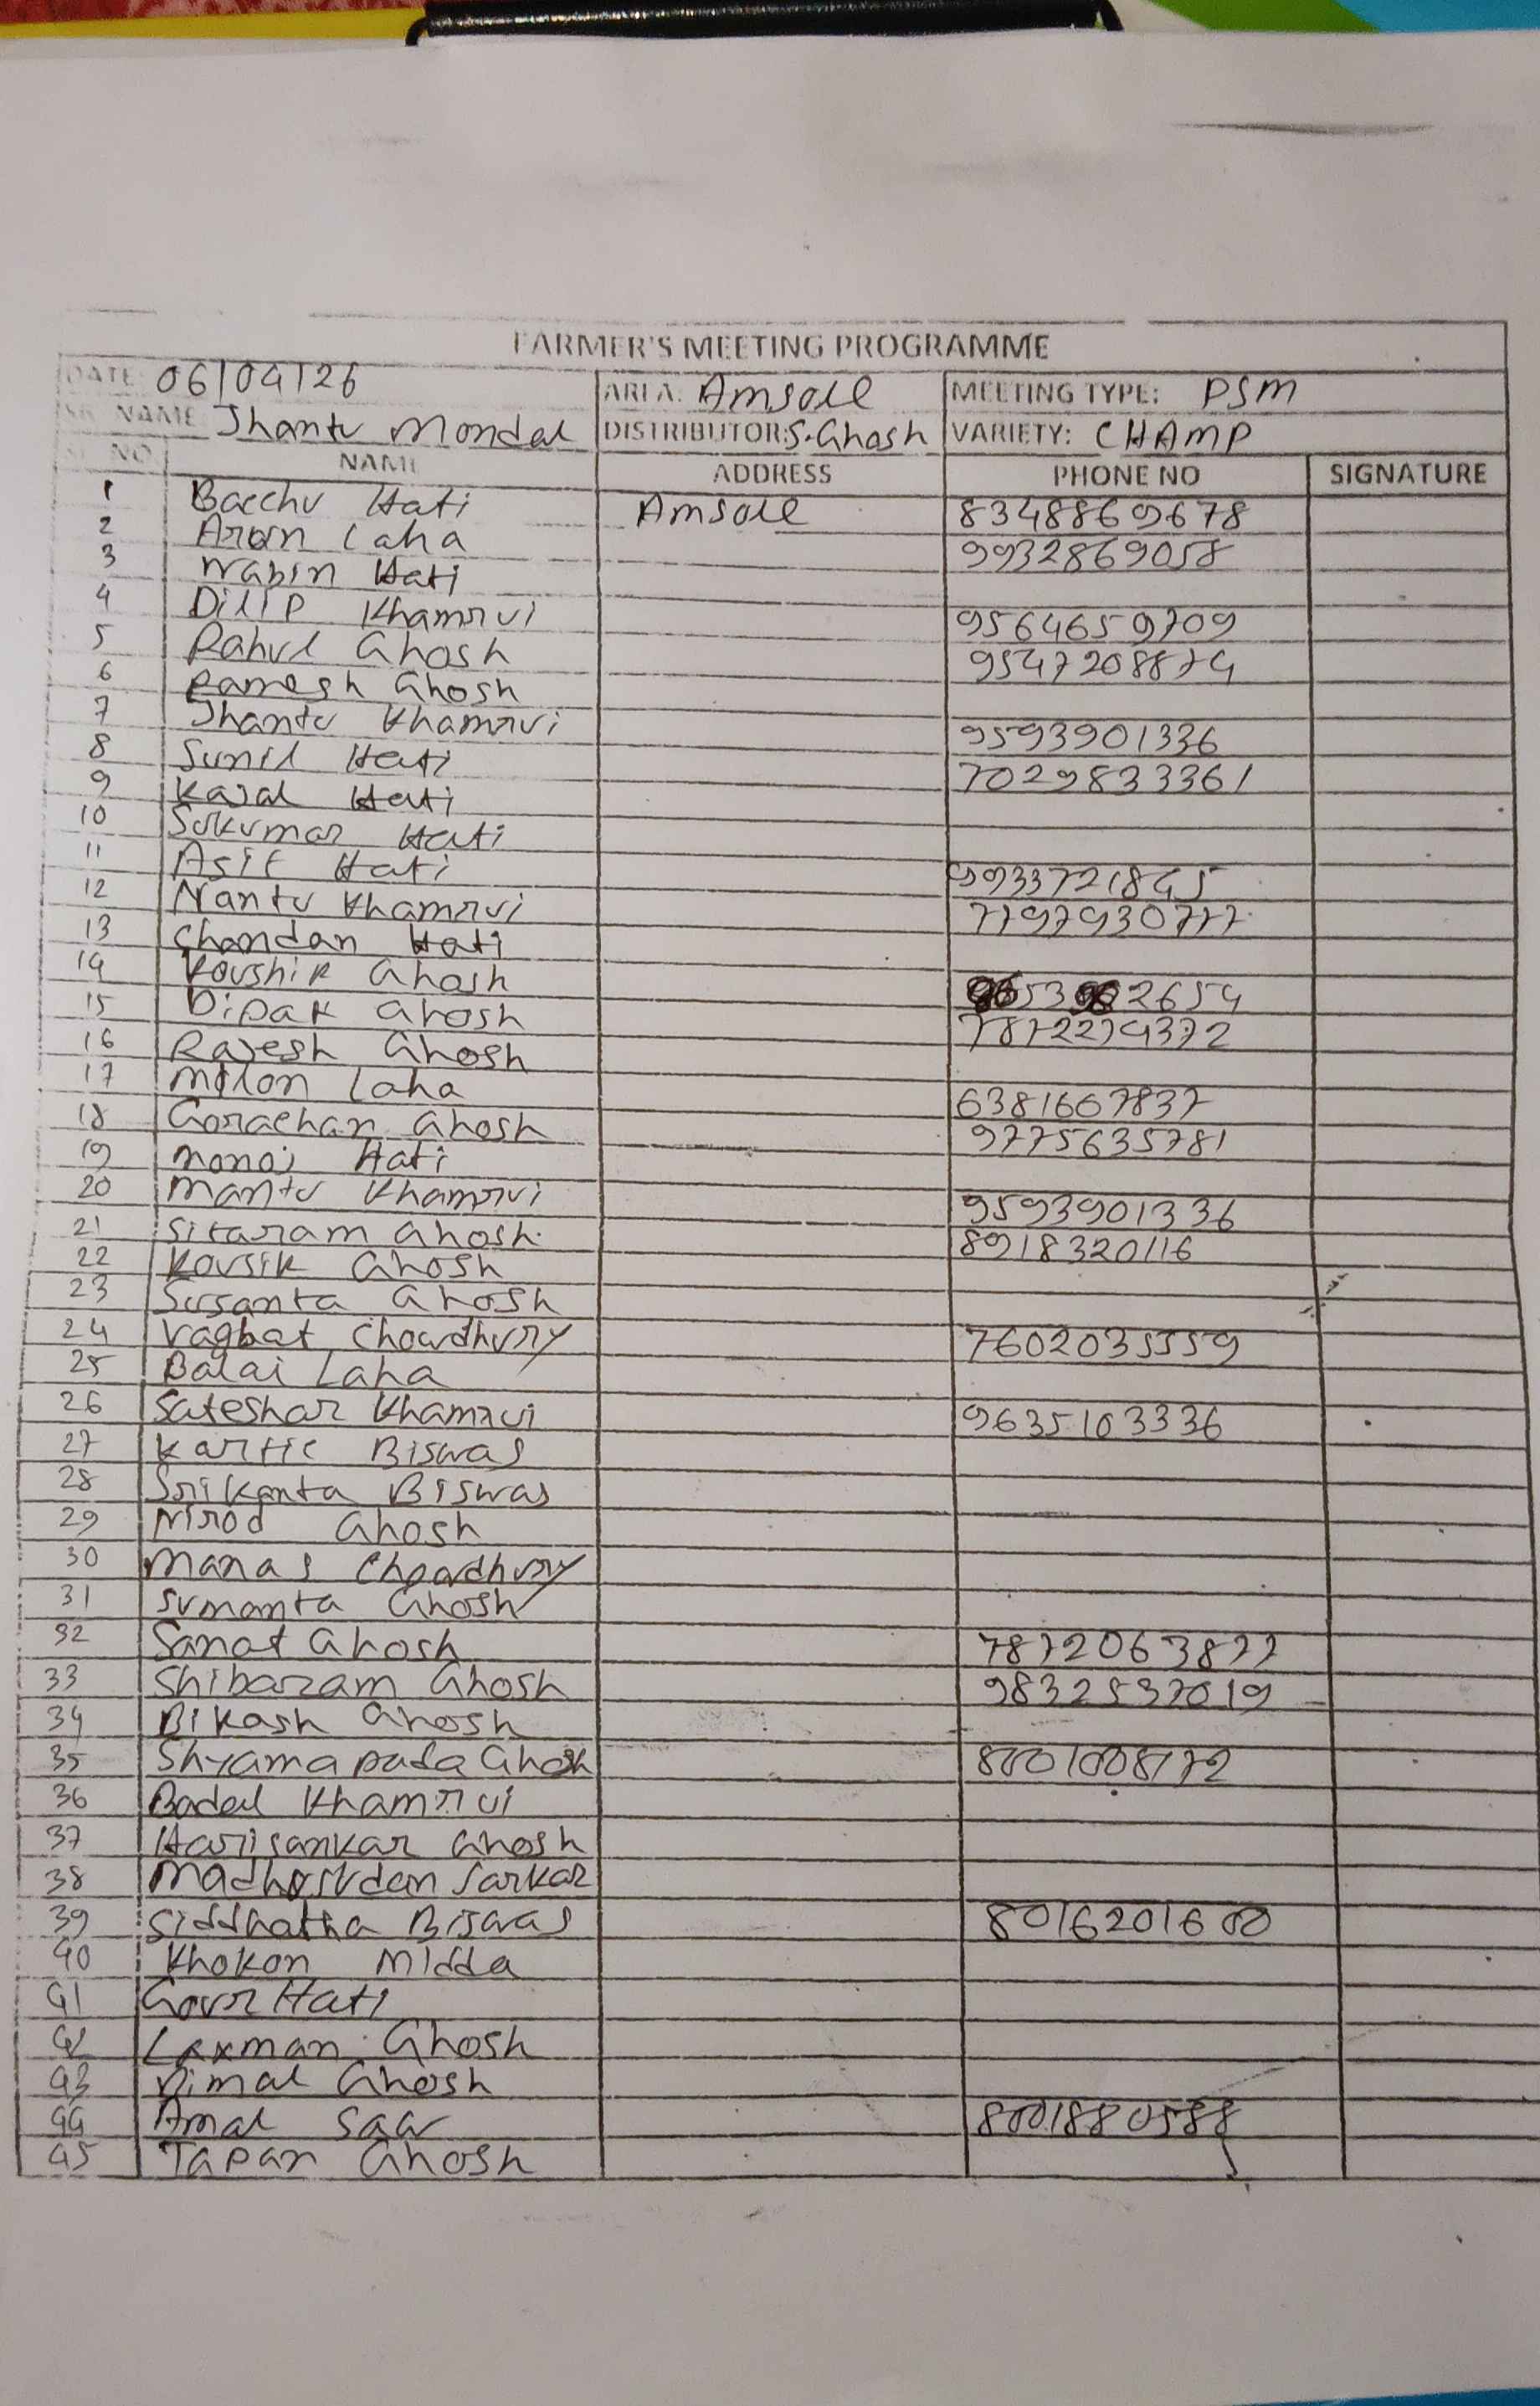 FARMER'S MEETING PROGRAMME
DATE: 06/04/26 AREA: Amsole MEETING TYPE: PSM
NAME Jhantu Mondal DISTRIBUTOR: S. Ghosh VARIETY: CHAMP
SL. NO. NAME ADDRESS PHONE NO SIGNATURE
1 Bacchu Hati Amsole 8348869678
2 Arun Laha 9932869058
3 Nabin Hati
4 Dilip Khamrui 9564659709
5 Rahul Ghosh 9547208874
6 Ramesh Ghosh
7 Jhantu Khamrui 9593901336
8 Sunil Hati 7029833361
9 Kajal Hati
10 Sukumar Hati
11 Asit Hati 9933721845
12 Nantu Khamrui 7797930777
13 Chandan Hati
14 Koushik Ghosh
15 Dipak Ghosh 7872274372
16 Rajesh Ghosh
17 Milon Laha 6381667837
18 Gorachan Ghosh 9775635781
19 Monoj Hati
20 Mantu Khamrui 9593901336
21 Sitaram Ghosh 8918320116
22 Kousik Ghosh
23 Susanta Ghosh
24 Vagbat Chowdhury 7602035559
25 Balai Laha
26 Sateshar Khamrui 9635103336
27 Kartic Biswas
28 Srikanta Biswas
29 Nirod Ghosh
30 Manas Chowdhury
31 Sumanta Ghosh
32 Sanat Ghosh 7872063877
33 Shibaram Ghosh 9832537019
34 Bikash Ghosh
35 Shyamapada Ghosh 8001008172
36 Badal Khamrui
37 Harisankar Ghosh
38 Madhusudan Sarkar
39 Siddhatha Biswas 8016201600
40 Khokon Midda
41 Gour Hati
42 Laxman Ghosh
43 Bimal Ghosh
44 Amal Sau 8001880588
45 Tapan Ghosh